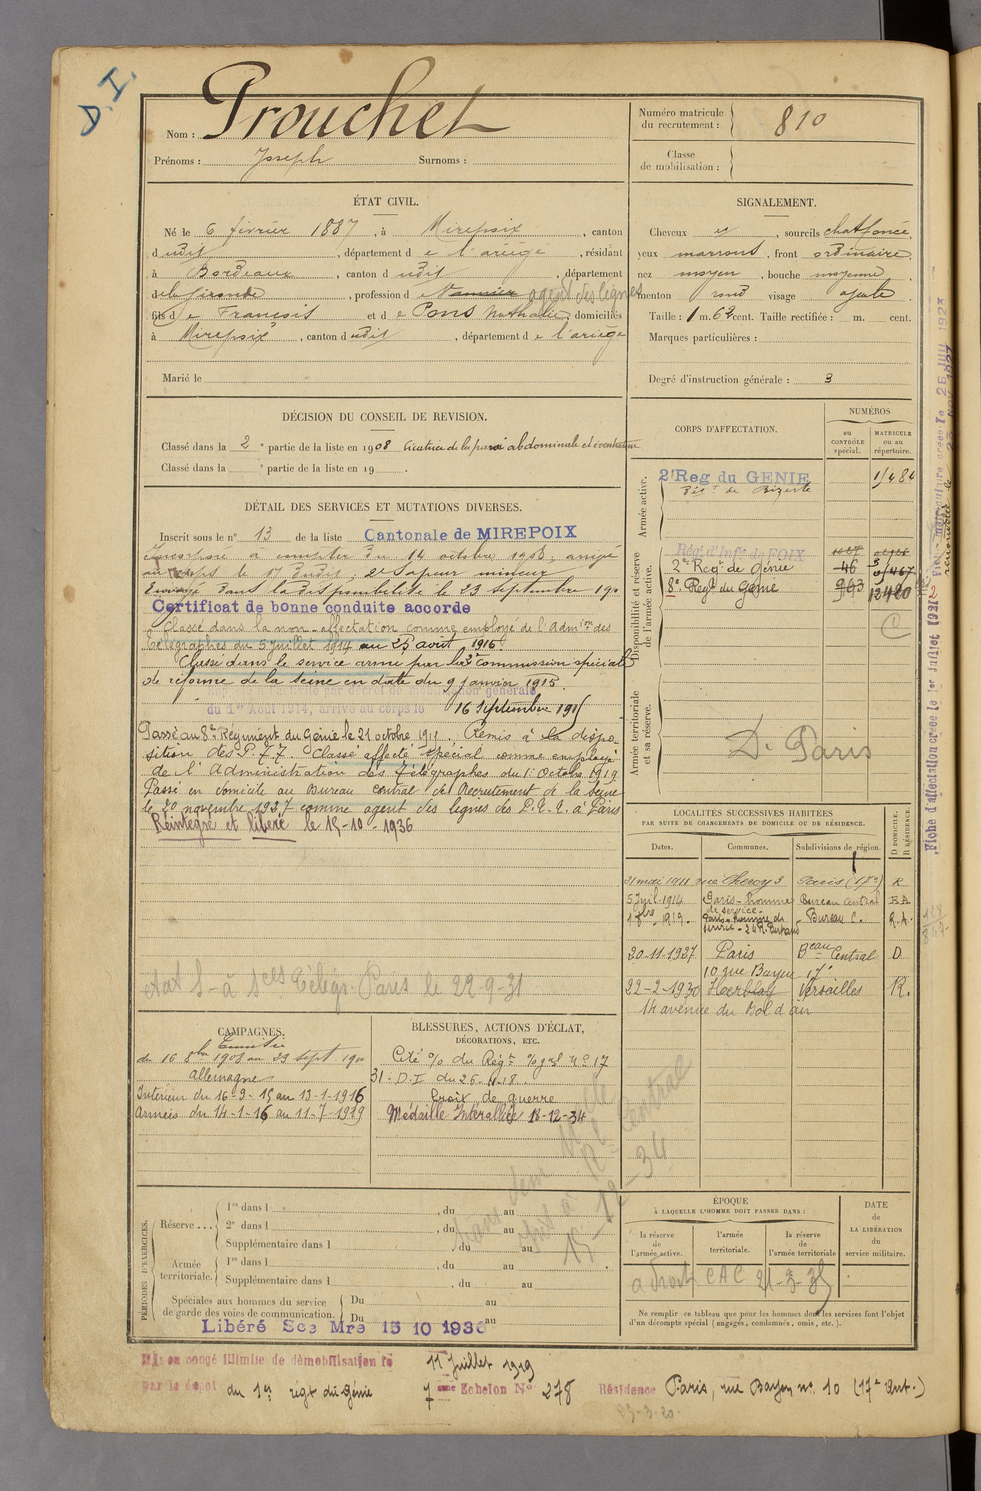 D.I.
Nom : Prouchet
Prénoms : Joseph Surnoms :
Numéro matricule du recrutement : 810
Classe de mobilisation :
ÉTAT CIVIL.
Né le 6 février 1887, à Mirepoix, canton
dudit, département de l'ariège, résidant
à Bordeaux, canton dudit, département
de la Gironde, profession d agent des lignes
fils de François et de Pons Nathalie, domiciliés
à Mirepoix, canton dudit, département de l'ariège
Marié le
SIGNALEMENT.
Cheveux et, sourcils chat foncé,
yeux marrons, front ordinaire,
nez moyen, bouche moyenne
menton rond visage ovale.
Taille : 1 m. 62 cent. Taille rectifiée : m. cent.
Marques particulières :
Degré d'instruction générale : 3
DÉCISION DU CONSEIL DE REVISION.
Classé dans la 2e partie de la liste en 1908 Cicatrice de la paroi abdominale et éventration
Classé dans la e partie de la liste en 19 .
DÉTAIL DES SERVICES ET MUTATIONS DIVERSES.
Inscrit sous le n° 13 de la liste Cantonale de MIREPOIX
Incorporé à compter du 14 octobre 1908; arrivé
au corps le 17 dudit; 2e Sapeur mineur
Envoyé dans la disponibilité le 23 septembre 190
Certificat de bonne conduite accordé
Classé dans la non-affectation comme employé de l'Admion des
Télégraphes du 5 juillet 1914 au 25 août 1915
Classé dans le service armé par la 3e commission spéciale
de réforme de la Seine en date du 9 janvier 1915.
décret de mobilisation générale
du 1er Août 1914, arrivé au corps le 16 septembre 1915
Passé au 8e Régiment du Génie le 21 octobre 1911. Remis à la dispo-
sition des P.T.T. Classé affecté spécial comme employé
de l'Administration des Télégraphes du 1er Octobre 1919
Passé en domicile au Bureau central de Recrutement de la Seine
le 20 novembre 1927 comme agent des lignes des P.T.T. à Paris
Réintégré et libéré le 15-10-1936
Etat S- à Sces Télégr. Paris le 22-9-31
CORPS D'AFFECTATION.
NUMÉROS
au CONTRÔLE spécial.
MATRICULE ou au répertoire.
Armée active.
2e Reg du GENIE
Dét. de Bizerte
1/484
Disponibilité et réserve de l'armée active.
Rég. d'Infie de FOIX
2e Regt de Génie 46 3/467
8e Regt du Génie 963 12420
C
Armée territoriale et sa réserve.
D. Paris
LOCALITÉS SUCCESSIVES HABITÉES
PAR SUITE DE CHANGEMENTS DE DOMICILE OU DE RÉSIDENCE.
Dates. Communes. Subdivisions de région. D DOMICILE. R RÉSIDENCE.
31 mai 1911 rue Cheroy 3 Paris (17e) R
5 Juil. 1914 Paris-homme de service- Bureau Central R.A.
1 8bre 1919. Paris-homme de service - Bureau C. R.A.
20-11-1927 Paris Beau Central D
10 rue Bayen 17e
22-2-1930 Herblay Versailles R.
14 avenue du Bol d'air
CAMPAGNES.
Tunisie
du 16 8bre 1908 au 23 sept. 190
allemagne
Intérieur du 16-9-15 au 13-1-1916
Armées du 14-1-16 au 11-7-1919
BLESSURES, ACTIONS D'ÉCLAT,
DÉCORATIONS, ETC.
Cité % du Régt % gal n° 17
31- D.I du 26-4-18.
Croix de guerre
Médaille Interalliée 18-12-34
PÉRIODES D'EXERCICES.
Réserve... 1re dans l , du au
2e dans l , du au
Supplémentaire dans l , du au
Armée territoriale. 1re dans l , du au
Supplémentaire dans l , du au
Spéciales aux hommes du service de garde des voies de communication. Du au
Du au
Libéré Sce Mre 15 10 1936
ÉPOQUE
À LAQUELLE L'HOMME DOIT PASSER DANS :
la réserve de l'armée active.
l'armée territoriale.
la réserve de l'armée territoriale
DATE de LA LIBÉRATION du service militaire.
a droit CAC 21-3-35
Ne remplir ce tableau que pour les hommes dont les services font l'objet
d'un décompte spécial (engagés, condamnés, omis, etc.).
Mis en congé illimité de démobilisation le 11 Juillet 1919
par le dépôt du 1er régt du Génie 7ème Echelon N° 278 Résidence Paris, rue Bayen n° 10 (17e arrt.)
23-3-20.
Fiche d'affectation créée le 1er Juillet 1921